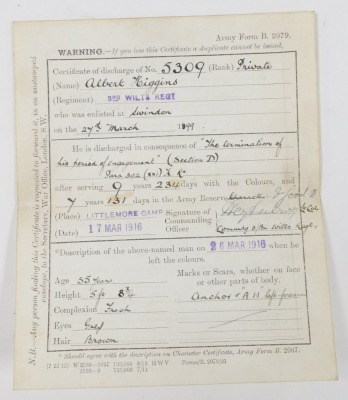 Army Form B. 2079.
WARNING.—If you lose this Certificate a duplicate cannot be issued.
Certificate of discharge of No. 5309 (Rank) Private
(Name) Albert Higgins
(Regiment) 3RD WILTS REGT
who was enlisted at Swindon
on the 27th March 1899.
He is discharged in consequence of "The termination of
his period of engagement" (Section D)
Para 392 (XXI) K. R.
after serving 9 years 234 days with the Colours, and
7 years 131 days in the Army Reserve. Character Good
(Place) LITTLEMORE CAMP Signature of
Commanding
(Date) 17 MAR 1916 Officer Commdg Wilts Regt.
*Description of the above-named man on 26 MAR 1916 when he
left the colours.
Age 35 years
Height 5 ft 8¾
Complexion Fresh
Eyes Grey
Hair Brown
Marks or Scars, whether on face
or other parts of body.
Anchor & "A H" left forearm
* Should agree with the description on Character Certificate, Army Form B. 2067.
N.B.—Any person finding this Certificate is requested to forward it, in an unstamped
envelope, to the Secretary, War Office, London, S.W.